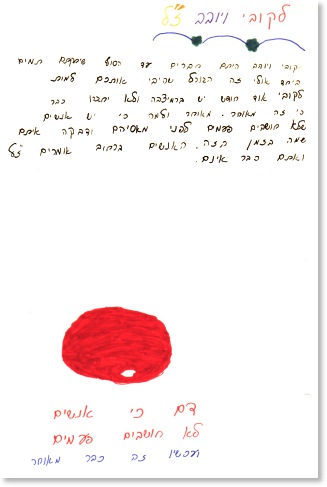 לקובי ויובב ז"ל
קובי ויובב הייתם חברים עד הסוף שיחקתם תמיד
ביחד אולי זה הגורל שהיבי אותכם למות
לקובי עוד חודש יש ברמיצבה ולא יחגגו כבר
כי זה מאוחר. מאוחר ולמה כי יש אנשים
שלא חושבים פעמים לפני מאסיהם ודבקה אתם
שמה בזמן הזה. האנשים ברחוב אומרים ז"ל
ואתם כבר אינם.
דם כי אנשים
לא חושבים פעמים
ועכשיו זה כבר מאוחר